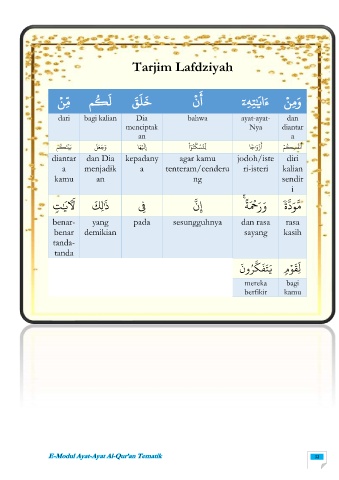 Tarjim Lafdziyah
وَمِنْ ءَايَٰتِهِۦٓ أَنْ خَلَقَ لَكُم مِّنْ
dan diantara ayat-ayat-Nya bahwa Dia menciptakan bagi kalian dari
أَنفُسِكُمْ أَزْوَٰجًا لِّتَسْكُنُوٓا۟ إِلَيْهَا وَجَعَلَ بَيْنَكُم
diri kalian sendiri jodoh/isteri-isteri agar kamu tenteram/cenderung kepadanya dan Dia menjadikan diantara kamu
مَّوَدَّةً وَرَحْمَةً ۚ إِنَّ فِى ذَٰلِكَ لَءَايَٰتٍ
rasa kasih dan rasa sayang sesungguhnya pada yang demikian benar-benar tanda-tanda
لِّقَوْمٍ يَتَفَكَّرُونَ
bagi kamu mereka berfikir
E-Modul Ayat-Ayat Al-Qur'an Tematik